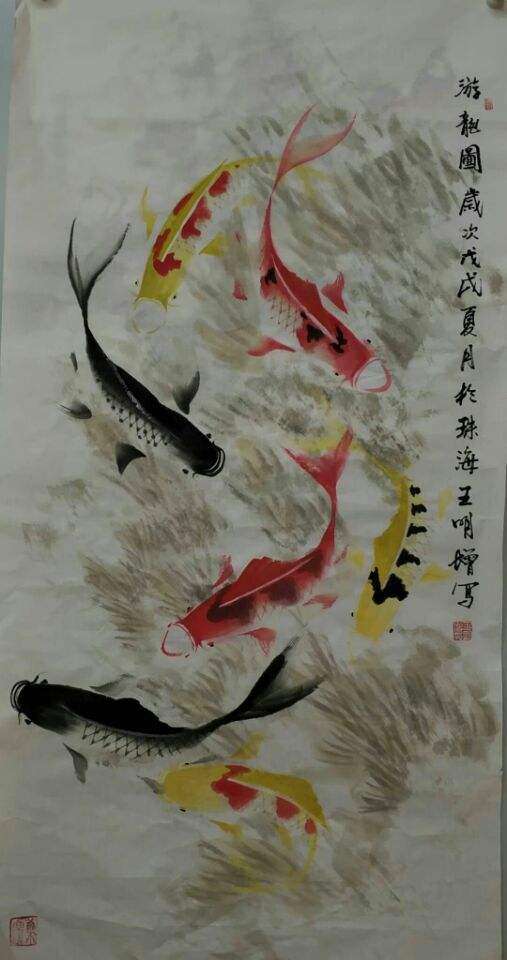 游龍圖歲次戊戌夏月於珠海王明增写